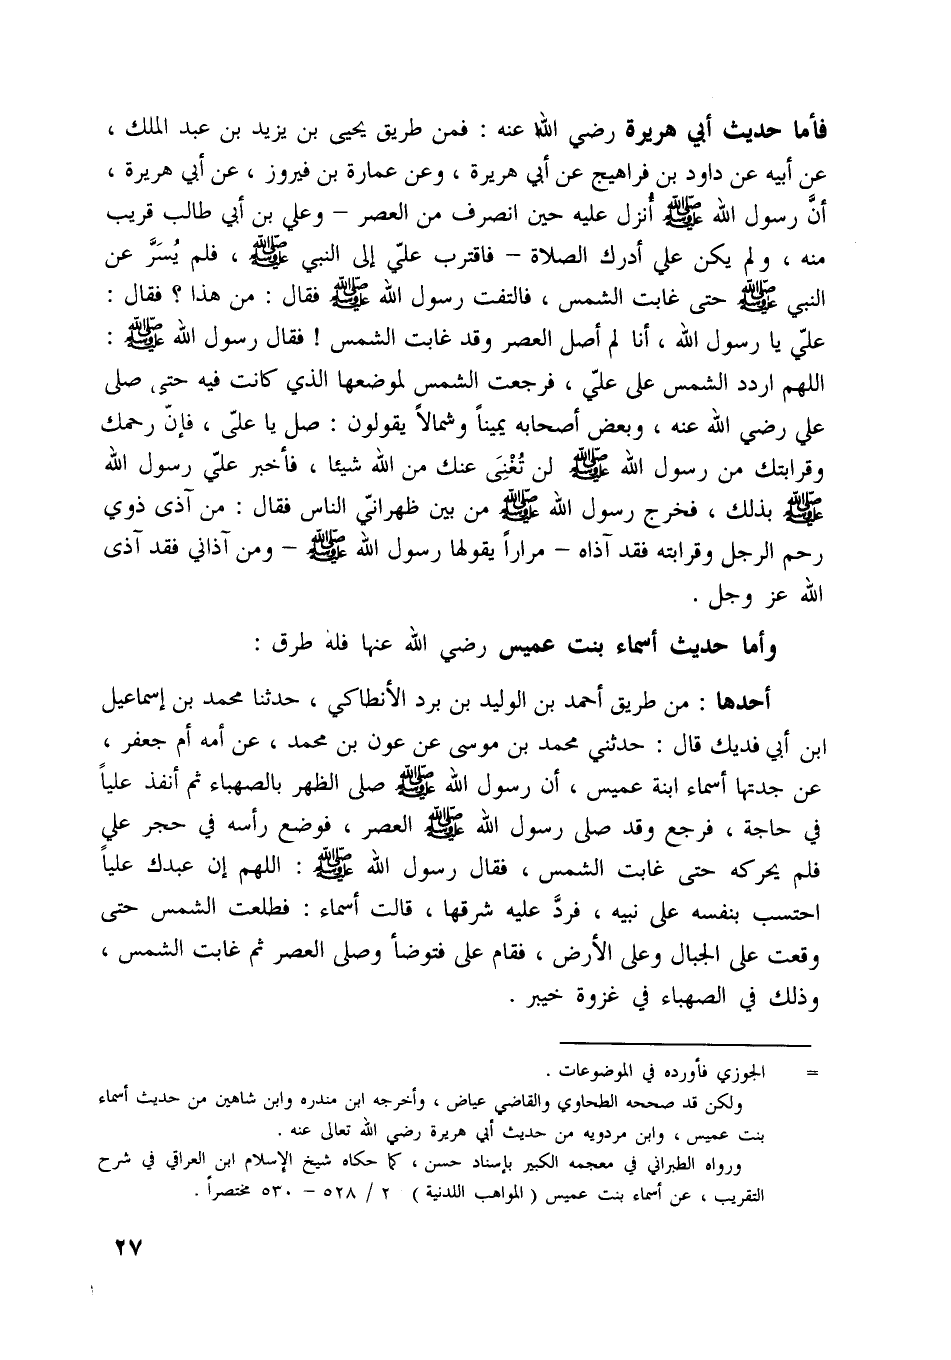 فأما حديث أبي هريرة رضي الله عنه : فمن طريق يحيى بن يزيد بن عبد الملك ،
عن أبيه عن داود بن فراهيج عن أبي هريرة ، وعن عمارة بن فيروز ، عن أبي هريرة ،
أنَّ رسول الله ﷺ أُنزل عليه حين انصرف من العصر – وعلي بن أبي طالب قريب
منه ، ولم يكن علي أدرك الصلاة – فاقترب عليّ إلى النبي ﷺ ، فلم يُسَرَّ عن
النبي ﷺ حتى غابت الشمس ، فالتفت رسول الله ﷺ فقال : من هذا ؟ فقال :
عليّ يا رسول الله ، أنا لم أصل العصر وقد غابت الشمس ! فقال رسول الله ﷺ :
اللهم اردد الشمس على عليّ ، فرجعت الشمس لموضعها الذي كانت فيه حتى صلى
علي رضي الله عنه ، وبعض أصحابه يميناً وشمالاً يقولون : صل يا علىّ ، فإنّ رحمك
وقرابتك من رسول الله ﷺ لن تُغْنِىَ عنك من الله شيئا ، فأخبر عليّ رسول الله
ﷺ بذلك ، فخرج رسول الله ﷺ من بين ظهرانيّ الناس فقال : من آذى ذوي
رحم الرجل وقرابته فقد آذاه – مراراً يقولها رسول الله ﷺ – ومن آذاني فقد آذى
الله عز وجل .
وأما حديث أسماء بنت عميس رضي الله عنها فله طرق :
أحدها : من طريق أحمد بن الوليد بن برد الأنطاكي ، حدثنا محمد بن إسماعيل
ابن أبي فديك قال : حدثني محمد بن موسى عن عون بن محمد ، عن أمه أم جعفر ،
عن جدتها أسماء ابنة عميس ، أن رسول الله ﷺ صلى الظهر بالصهباء ثم أنفذ علياً
في حاجة ، فرجع وقد صلى رسول الله ﷺ العصر ، فوضع رأسه في حجر علي
فلم يحركه حتى غابت الشمس ، فقال رسول الله ﷺ : اللهم إن عبدك علياً
احتسب بنفسه على نبيه ، فردَّ عليه شرقها ، قالت أسماء : فطلعت الشمس حتى
وقعت على الجبال وعلى الأرض ، فقام على فتوضأ وصلى العصر ثم غابت الشمس ،
وذلك في الصهباء في غزوة خيبر .
= الجوزي فأورده في الموضوعات .
ولكن قد صححه الطحاوي والقاضي عياض ، وأخرجه ابن مندره وابن شاهين من حديث أسماء
بنت عميس ، وابن مردويه من حديث أبي هريرة رضي الله تعالى عنه .
ورواه الطبراني في معجمه الكبير بإسناد حسن ، كما حكاه شيخ الإسلام ابن العراقي في شرح
التقريب ، عن أسماء بنت عميس ( المواهب اللدنية ) ٢ / ٥٢٨ – ٥٣٠ مختصراً .
٢٧